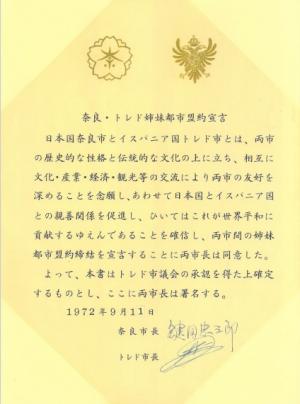 奈良・トレド姉妹都市盟約宣言
日本国奈良市とイスパニア国トレド市とは、両市
の歴史的な性格と伝統的な文化の上に立ち、相互に
文化・産業・経済・観光等の交流により両市の友好を
深めることを念願し、あわせて日本国とイスパニア国
との親善関係を促進し、ひいてはこれが世界平和に
貢献するゆえんであることを確信し、両市間の姉妹
都市盟約締結を宣言することに両市長は同意した。
よって、本書はトレド市議会の承認を得た上確定
するものとし、ここに両市長は署名する。
1972年9月11日
奈良市長 鍵田忠三郎
トレド市長